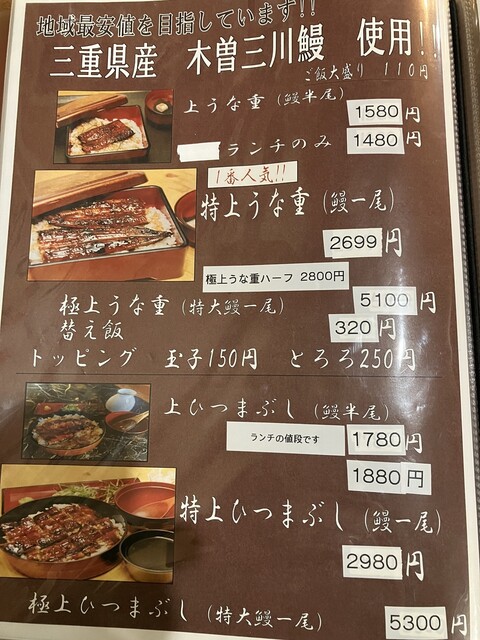 地域最安値を目指しています!!
三重県産 木曽三川鰻 使用!!
ご飯大盛り 110円
上うな重 (鰻半尾)
1580円
ランチのみ 1480円
1番人気!!
特上うな重 (鰻一尾)
2699円
極上うな重ハーフ 2800円
極上うな重 (特大鰻一尾) 5100円
替え飯 320円
トッピング 玉子150円 とろろ250円
上ひつまぶし (鰻半尾)
ランチの値段です 1780円
1880円
特上ひつまぶし (鰻一尾)
2980円
極上ひつまぶし (特大鰻一尾) 5300円